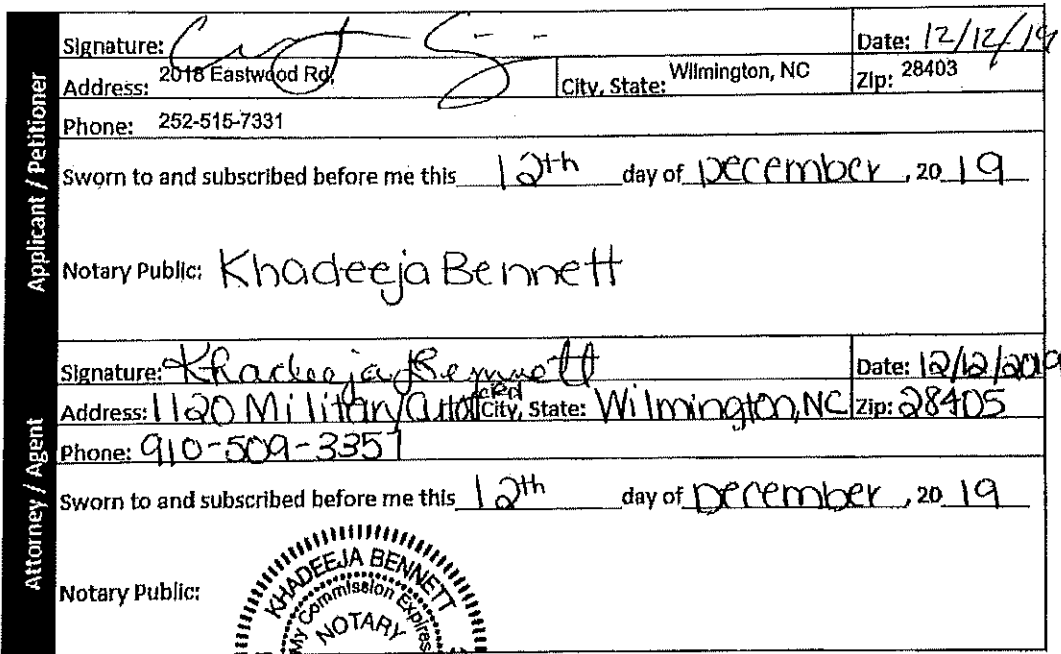 Applicant / Petitioner
Signature: Date: 12/12/19
Address: 2018 Eastwood Rd, City, State: Wilmington, NC Zip: 28403
Phone: 252-515-7331
Sworn to and subscribed before me this 12th day of December, 20 19
Notary Public: Khadeeja Bennett
Attorney / Agent
Signature: Khadeeja Bennett Date: 12/12/2019
Address: 1120 Military Cutoff City, State: Wilmington, NC Zip: 28405
Phone: 910-509-3357
Sworn to and subscribed before me this 12th day of December, 20 19
Notary Public:
KHADEEJA BENNETT
My Commission Expires
NOTARY